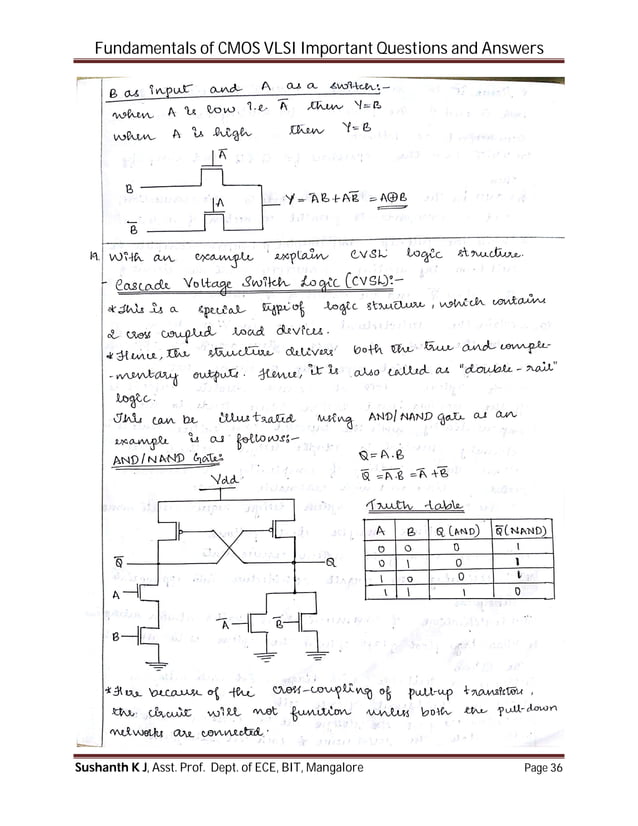 Fundamentals of CMOS VLSI Important Questions and Answers
B as input and A as a switch:-
when A is low, i.e. A̅ then Y=B
when A is high then Y=B
A̅
B
A
Y = A̅B + AB̅ = A⊕B
B̅
19. With an example explain CVSL logic structure.
- Cascade Voltage Switch Logic (CVSL):-
* This is a special type of logic structure, which contains
2 cross coupled load devices.
* Hence, the structure delivers both the true and comple-
-mentary outputs. Hence, it is also called as "double-rail"
logic.
This can be illustrated using AND/NAND gate as an
example is as follows:-
AND/NAND Gate:
Q = A.B
Q̅ = A̅.̅B̅ = A̅ + B̅
Vdd
Truth table
A B Q (AND) Q̅ (NAND)
0 0 0 1
0 1 0 1
1 0 0 1
1 1 1 0
Q̅ Q
A
A̅ B̅
B
* Here because of the cross-coupling of pull-up transistor,
the circuit will not function unless both the pull-down
networks are connected.
Sushanth K J, Asst. Prof. Dept. of ECE, BIT, Mangalore Page 36